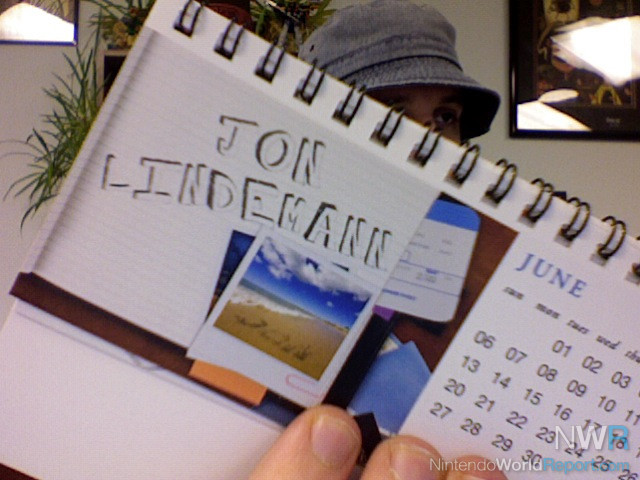 JON
LINDEMANN
JUNE
sun mon tues wed
01 02 03
06 07 08 09 10
13 14 15 16 17 18
20 21 22 23 24 25
27 28 29 30
NWR
NintendoWorldReport.com